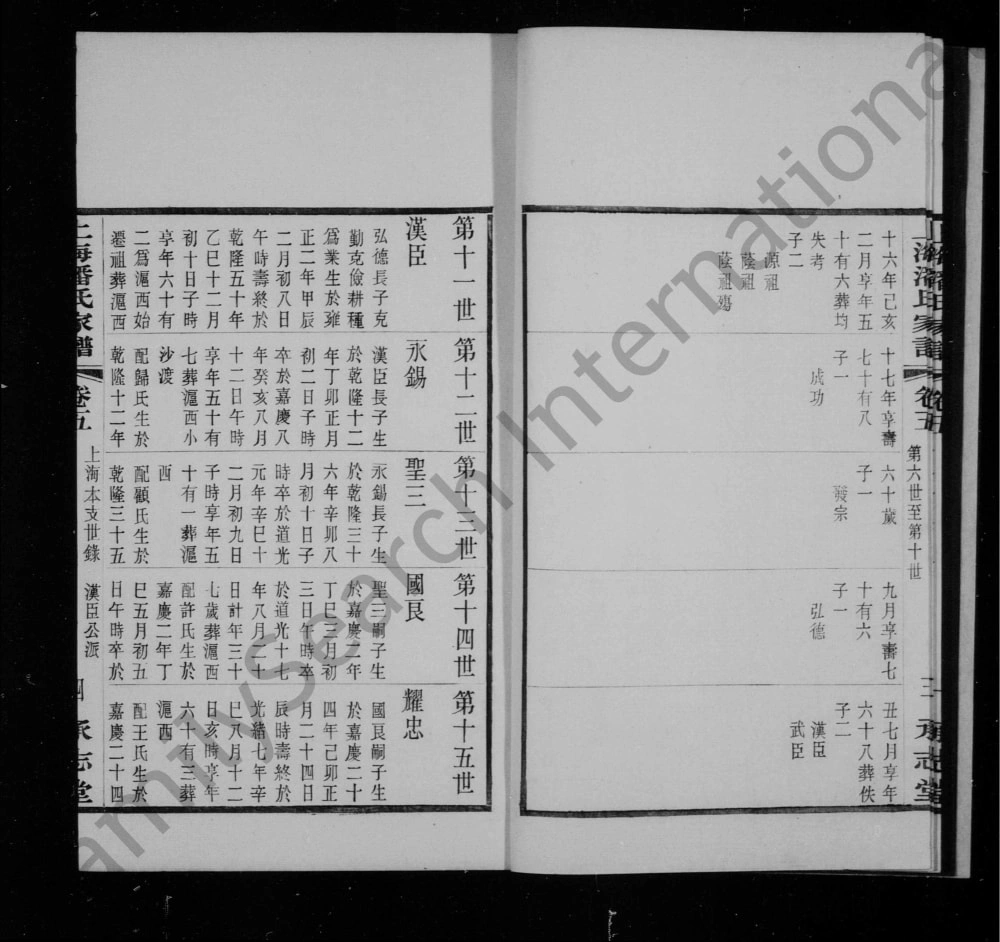 上海潘氏家譜
卷五
第六世至第十世
三
承志堂
十六年己亥
二月享年五
十有六葬均
失考
子二
源祖
蔭祖
蔭祖殤
十七年享壽
七十有八
子一
成功
六十歲
子一
發宗
九月享壽七
十有六
子一
弘德
丑七月享年
六十八葬佚
子二
漢臣
武臣
第十一世
漢臣
弘德長子克
勤克儉耕種
爲業生於雍
正二年甲辰
二月初八日
午時壽終於
乾隆五十年
乙巳十二月
初十日子時
享年六十有
二爲滬西始
遷祖葬滬西
第十二世
永錫
漢臣長子生
於乾隆十二
年丁卯正月
初二日子時
卒於嘉慶八
年癸亥八月
十二日午時
享年五十有
七葬滬西小
沙渡
配歸氏生於
乾隆十二年
第十三世
聖三
永錫長子生
於乾隆三十
六年辛卯八
月初十日子
時卒於道光
元年辛巳十
二月初九日
子時享年五
十有一葬滬
西
配顧氏生於
乾隆三十五
第十四世
國良
聖三嗣子生
於嘉慶二年
丁巳三月初
三日午時卒
於道光十七
年八月二十
日計年三十
七歲葬滬西
配許氏生於
嘉慶二年丁
巳五月初五
日午時卒於
第十五世
耀忠
國良嗣子生
於嘉慶二十
四年己卯正
月二十四日
辰時壽終於
光緒七年辛
巳八月十二
日亥時享年
六十有三葬
滬西
配王氏生於
嘉慶二十四
上海潘氏家譜
卷五
上海本支世錄
漢臣公派
四
承志堂
FamilySearch International